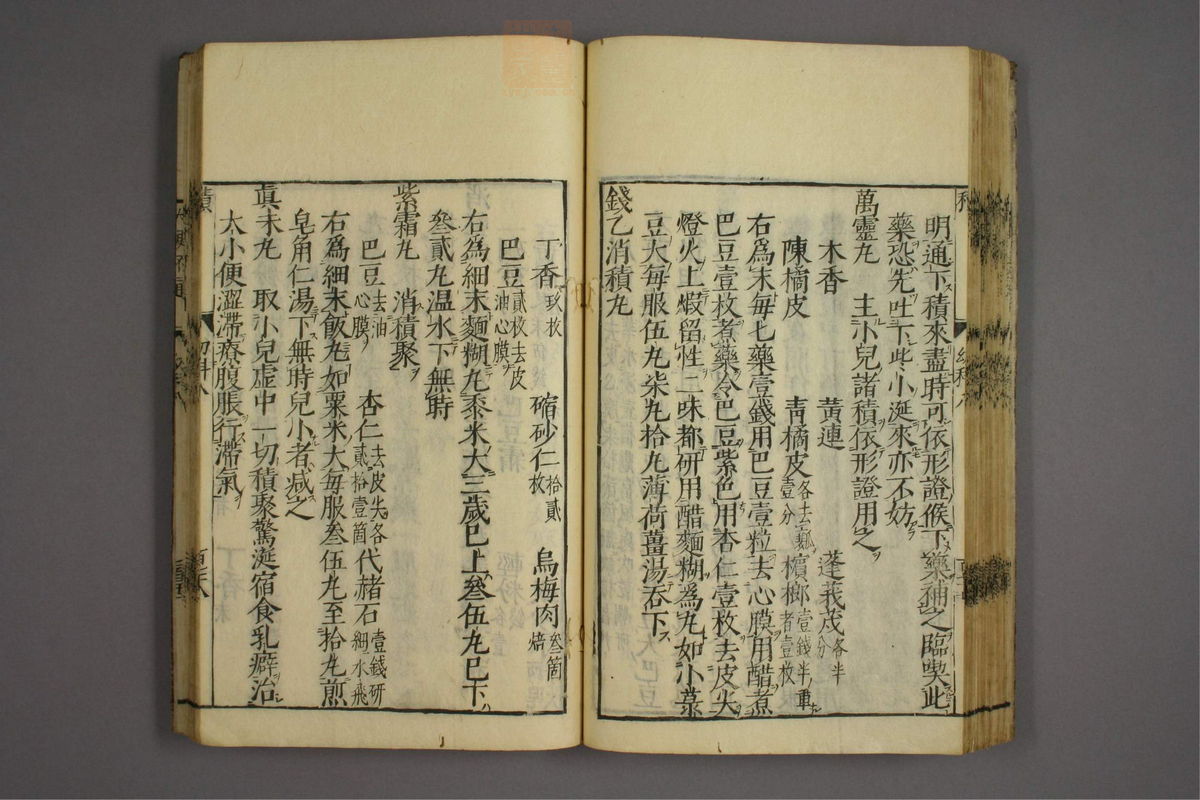 明通下積來盡時可依形證候下藥補之臨喫此
藥恐先吐下此小涎來亦不妨
萬靈丸 主小兒諸積依形證用之
木香 黃連 蓬莪茂各半分
陳橘皮 青橘皮各去瓤壹分 檳榔壹錢半重者壹枚
右爲末每七藥壹錢用巴豆壹粒去心膜用醋煮
巴豆壹枚煮藥令巴豆紫色用杏仁壹枚去皮尖
燈火上煆留性二味都研用醋麵糊爲丸如小菉
豆大每服伍丸柒丸拾丸薄荷薑湯吞下
錢乙消積丸
丁香玖枚 縮砂仁拾貳枚 烏梅肉叄箇焙
巴豆貳枚去皮油心膜
右爲細末麵糊丸黍米大三歲巳上叄伍丸巳下
叄貳丸温水下無時
紫霜丸 消積聚
巴豆去油心膜 杏仁去皮尖各貳拾壹箇 代赭石壹錢研細水飛
右爲細末飯丸如粟米大每服叄伍丸至拾丸煎
皂角仁湯下無時兒小者減之
眞未丸 取小兒虛中一切積聚驚涎宿食乳癖治
大小便澀滯療腹脹行滯氣